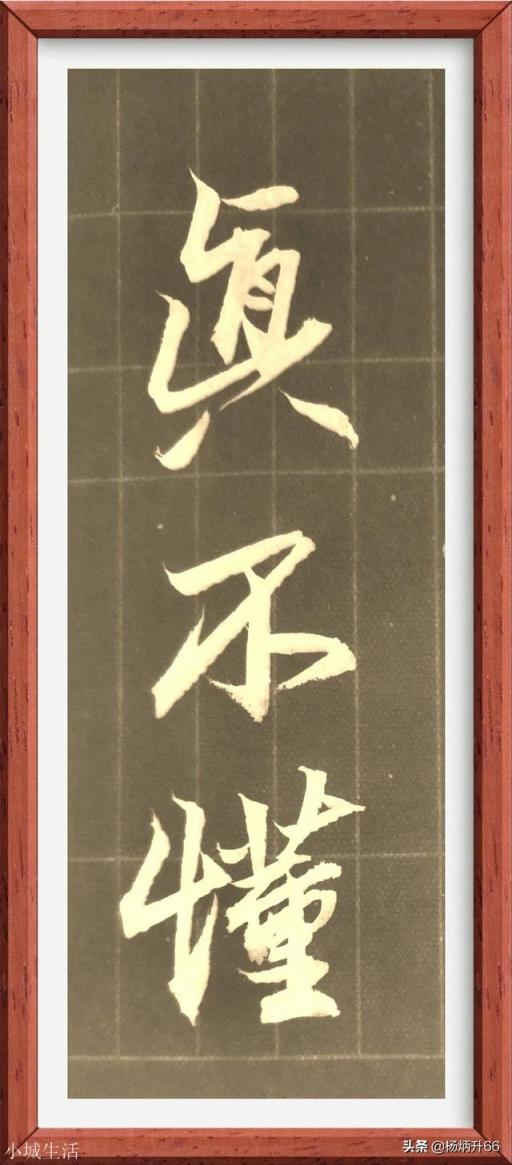 真不懂
小城生活
头条 @杨炳升66